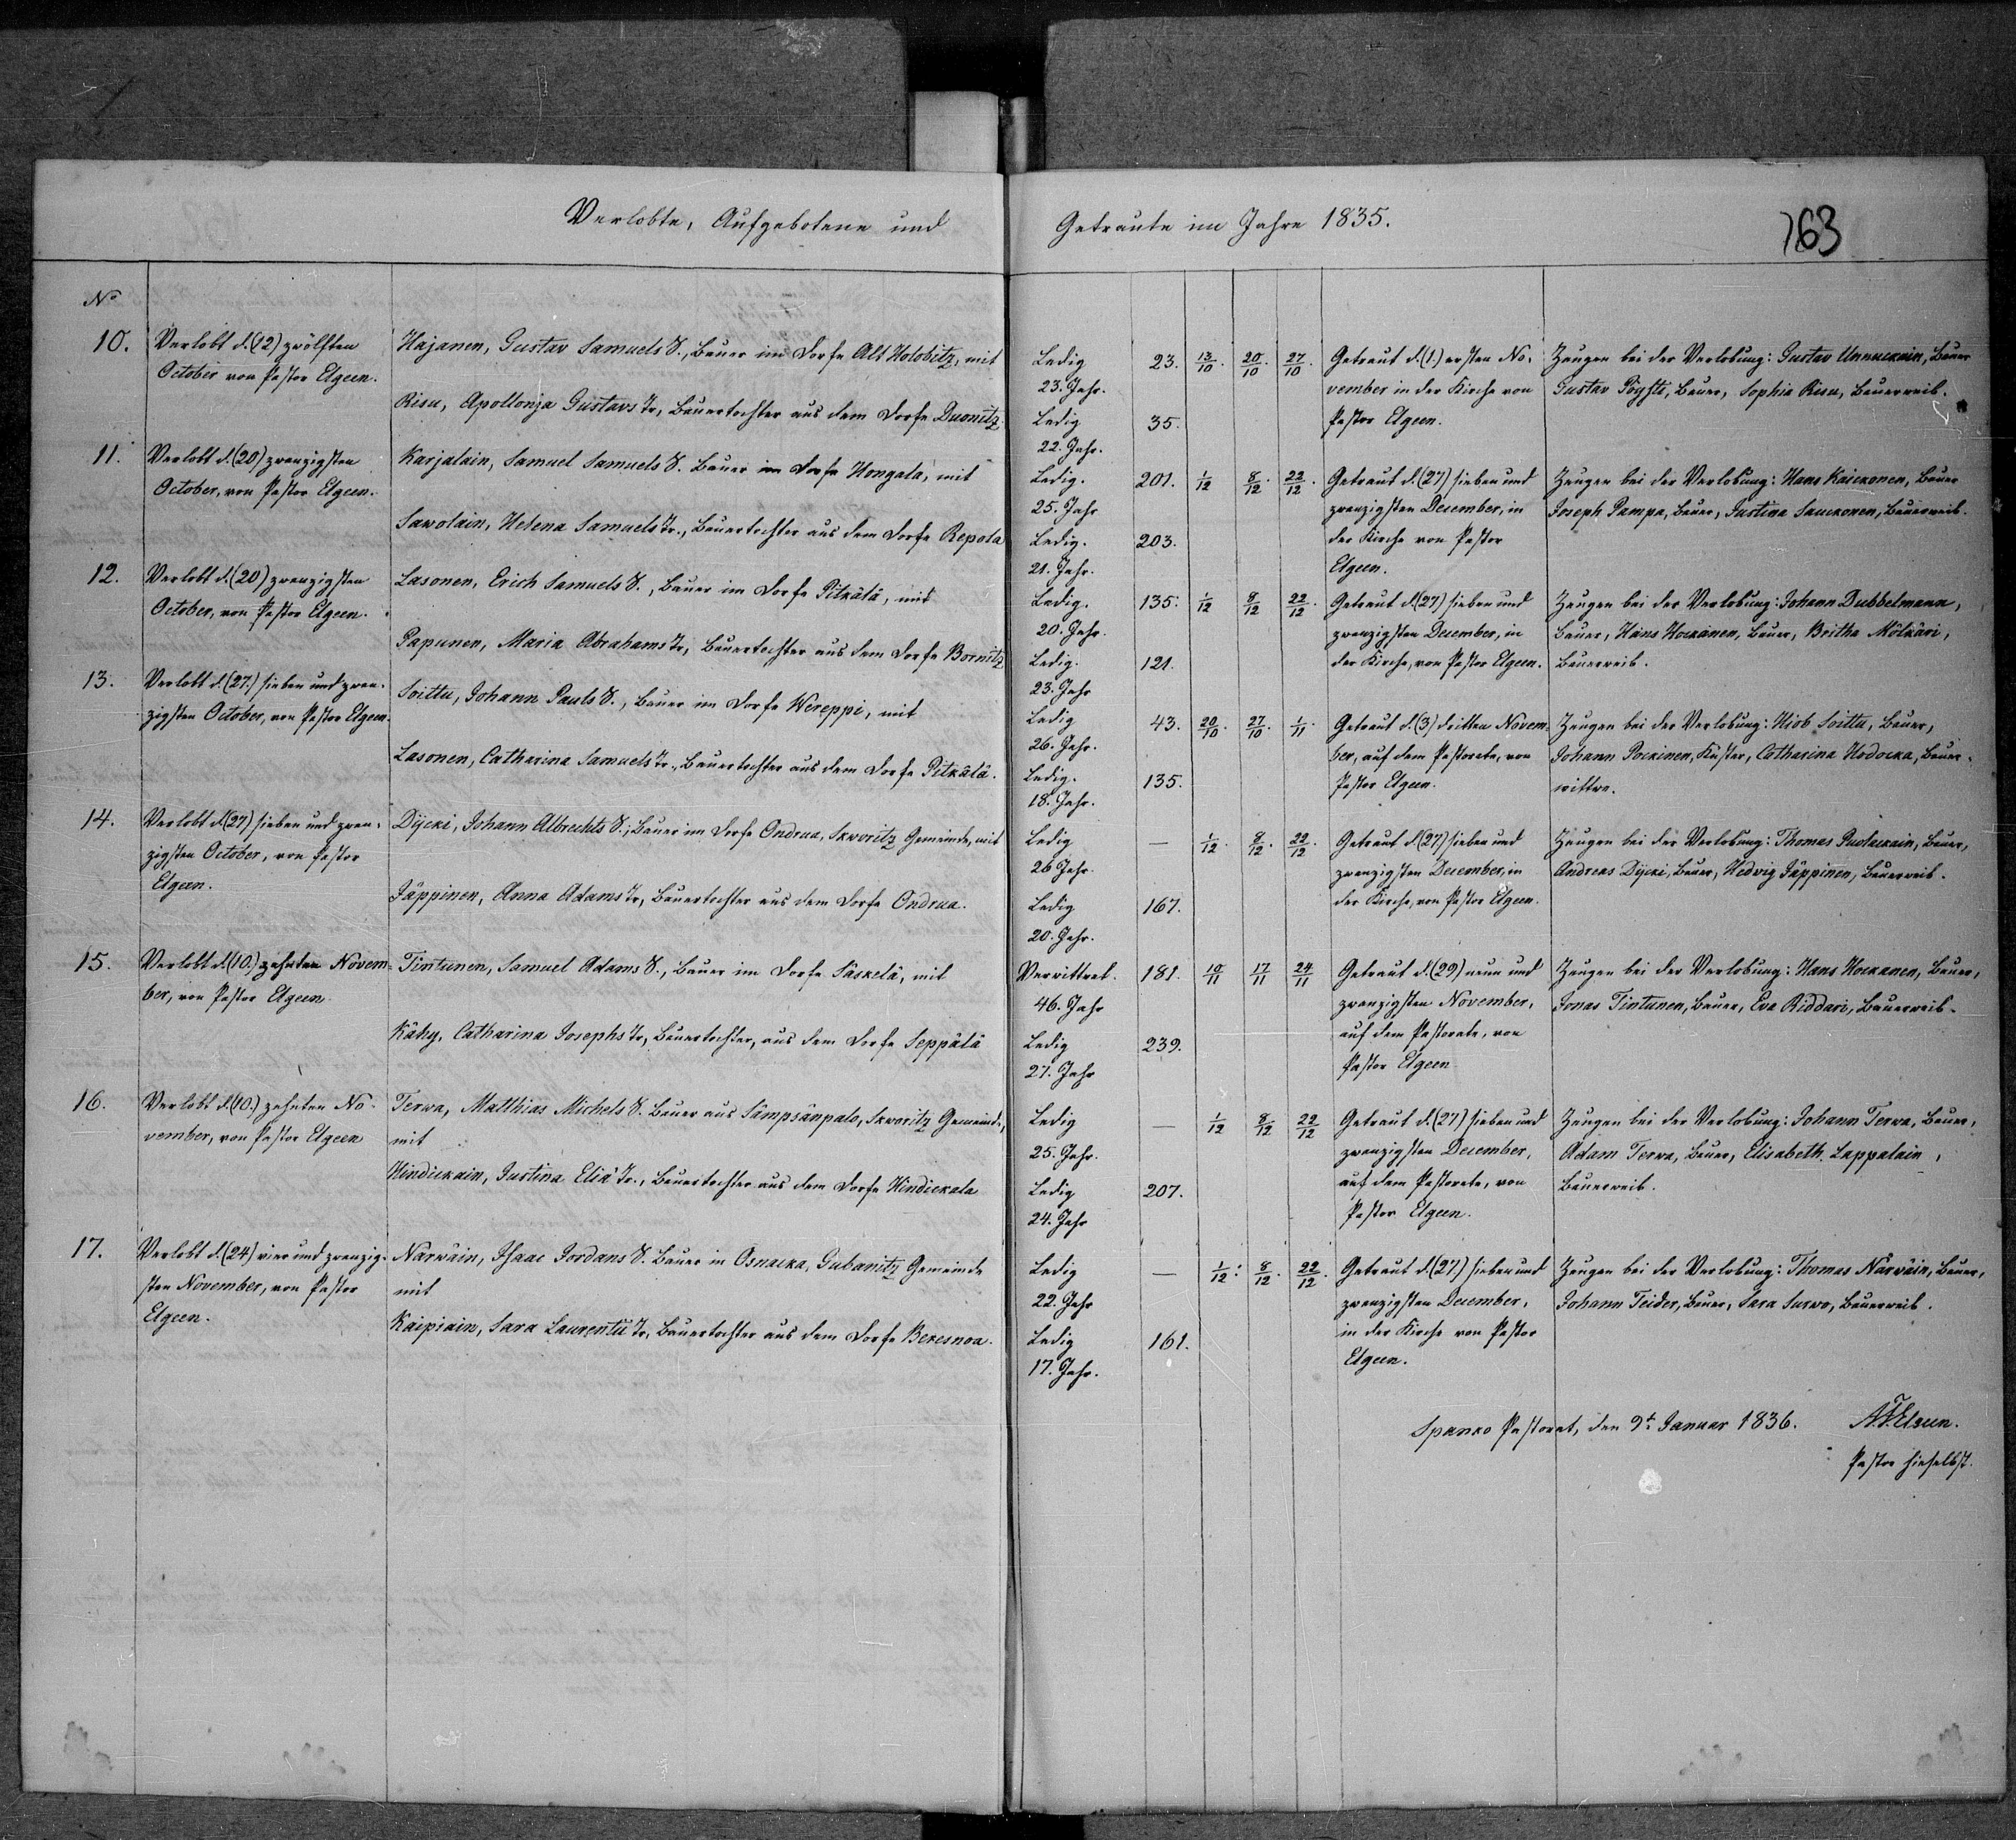 Verlobte, Aufgebotene und Getraute im Jahre 1835.
763
No
10. Verlobt d. (12) zwölften
October von Pastor Elgeen.
Hajanen, Gustav Samuels S., Bauer im Dorfe Alt Holobitz, mit
Risu, Apollonja Gustavs Tr, Bauertochter aus dem Dorfe Duonitz
Ledig
23. Jahr.
Ledig
22. Jahr.
23.
35.
13/10. 20/10. 27/10.
Getraut d. (1.) ersten No-
vember in der Kirche von
Pastor Elgeen.
Zeugen bei der Verlobung: Gustav Unnuckain, Bauer
Gustav Pöysti, Bauer, Sophia Risu, Bauerweib.
11. Verlobt d. (20) zwanzigsten
October, von Pastor Elgeen.
Karjalain, Samuel Samuels S. Bauer im Dorfe Hongala, mit
Sawolain, Helena Samuels Tr., Bauertochter aus dem Dorfe Repola
Ledig.
25. Jahr
Ledig.
21. Jahr.
201.
203.
1/12 8/12. 22/12.
Getraut d. (27) sieben und
zwanzigsten December, in
der Kirche von Pastor
Elgeen.
Zeugen bei der Verlobung: Hans Kaickonen, Bauer
Joseph Pampa, Bauer, Justina Sauckonen, Bauerweib.
12. Verlobt d. (20) zwanzigsten
October, von Pastor Elgeen.
Lasonen, Erich Samuels S., Bauer im Dorfe Pitkälä, mit
Papunen, Maria Abrahams Tr, Bauertochter aus dem Dorfe Bornitz
Ledig.
20. Jahr.
Ledig.
23. Jahr
135.
121.
1/12 8/12 22/12.
Getraut d. (27) sieben und
zwanzigsten December, in
der Kirche, von Pastor Elgeen.
Zeugen bei der Verlobung: Johann Dubbelmann,
Bauer, Hans Hockanen, Bauer, Britha Mölkäri,
Bauerweib.
13. Verlobt d. (27.) sieben und zwan-
zigsten October, von Pastor Elgeen.
Soittu, Johann Pauls S., Bauer im Dorfe Wereppi, mit
Lasonen, Catharina Samuels Tr., Bauertochter aus dem Dorfe Pitkälä.
Ledig
26. Jahr.
Ledig.
18. Jahr.
43.
135.
20/10. 27/10. 1/11.
Getraut d. (3) dritten Novem-
ber, auf dem Pastorate, von
Pastor Elgeen.
Zeugen bei der Verlobung: Hiob Soittu, Bauer,
Johann Pockinen, Küster, Catharina Hodocka, Bauer-
wittwe.
14. Verlobt d. (27) sieben und zwan-
zigsten October, von Pastor
Elgeen.
Dijcki, Johann Albrechts S., Bauer im Dorfe Ondrua, Skworitz Gemeinde, mit
Jäppinen, Anna Adams Tr, Bauertochter aus dem Dorfe Ondrua.
Ledig
26 Jahr.
Ledig
20. Jahr.
—
167.
1/12. 8/12. 22/12.
Getraut d. (27) sieben und
zwanzigsten December, in
der Kirche, von Pastor Elgeen.
Zeugen bei der Verlobung: Thomas Puolackain, Bauer,
Andreas Dijcki, Bauer, Hedvig Jäppinen, Bauerweib.
15. Verlobt d. (10.) zehnten Novem-
ber, von Pastor Elgeen
Tintunen, Samuel Adams S., Bauer im Dorfe Säskelä, mit
Kähy, Catharina Josephs Tr, Bauertochter, aus dem Dorfe Seppälä
Verwittwet.
46. Jahr
Ledig
27. Jahr
181.
239.
10/11 17/11 24/11
Getraut d. (29) neun und
zwanzigsten November,
auf dem Pastorate, von
Pastor Elgeen
Zeugen bei der Verlobung: Hans Hockanen, Bauer,
Jonas Tintunen, Bauer, Eva Riddari, Bauerweib.
16. Verlobt d. (10.) zehnten No-
vember, von Pastor Elgeen
Terwa, Matthias Michels S. Bauer aus Sämpsänpalo, Skworitz Gemeinde,
mit
Hindickain, Justina Eliä Tr., Bauertochter aus dem Dorfe Hindickala
Ledig
25. Jahr.
Ledig
24. Jahr
—
207.
1/12 8/12 22/12
Getraut d. (27) sieben und
zwanzigsten December,
auf dem Pastorate, von
Pastor Elgeen.
Zeugen bei der Verlobung: Johann Terwa, Bauer,
Adam Terwa, Bauer, Elisabeth Lappalain,
Bauerweib.
17. Verlobt d. (24) vier und zwanzig-
sten November, von Pastor
Elgeen.
Närwäin, Isaac Jordans S. Bauer in Osnacka, Gubanitz Gemeinde
mit
Kaipiain, Sara Laurentii Tr, Bauertochter aus dem Dorfe Beresnoa.
Ledig
22. Jahr
Ledig
17. Jahr.
—
161.
1/12. 8/12. 22/12.
Getraut d. (27) sieben und
zwanzigsten December,
in der Kirche von Pastor
Elgeen.
Zeugen bei der Verlobung: Thomas Närwäin, Bauer,
Johann Teider, Bauer, Sara Surwo, Bauerweib.
Spanko Pastorat, den 9t. Januar 1836.
Pastor hieselbst.